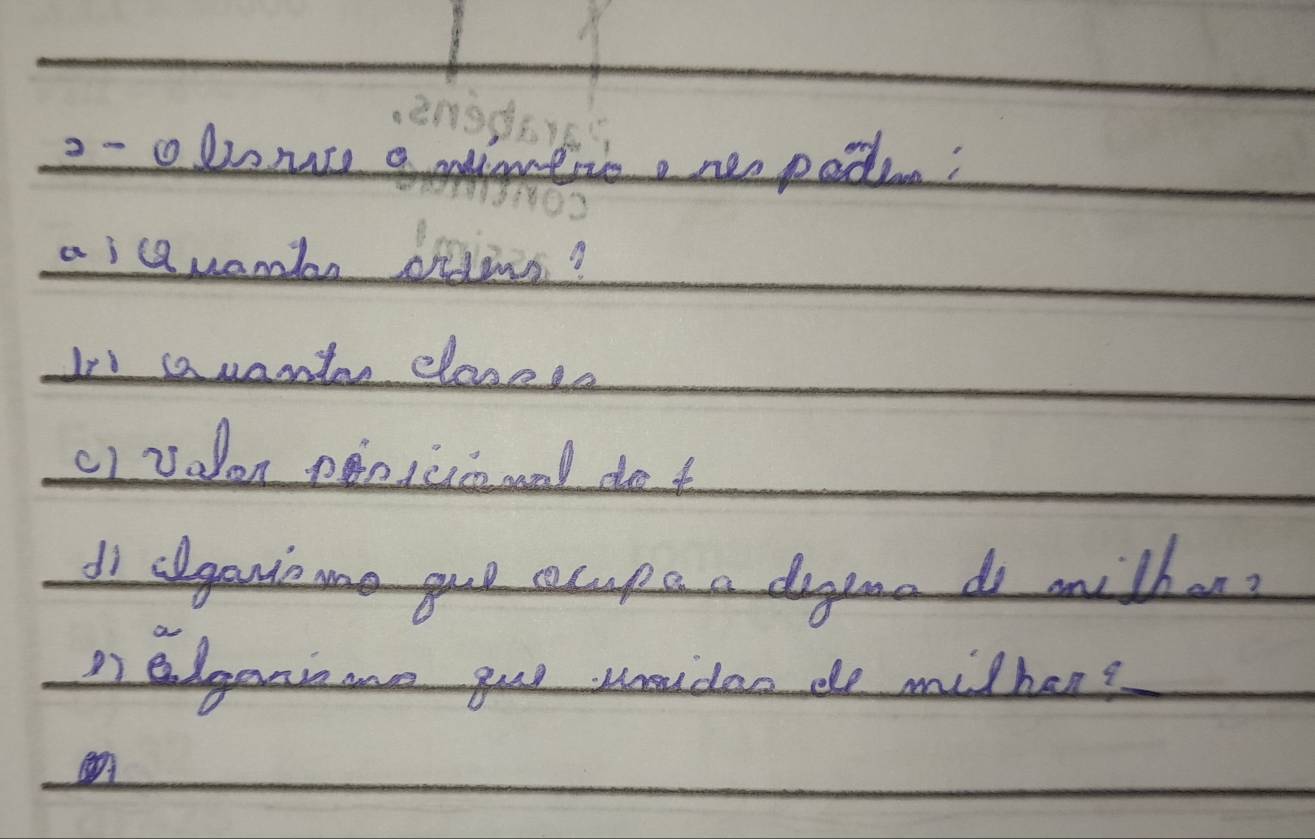 2- Observe o número e responda:
a) Quantas ordens?
b) Quantas classes
c) Valor posicional do 7
d) algarismo que ocupa a dezena de milhar?
e) algarismo que unidas de milhar?